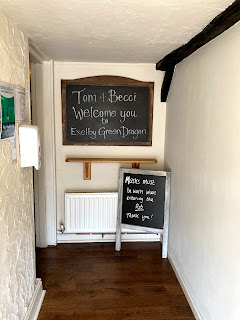 Tom & Becci
Welcome you
to
Exelby Green Dragon
Masks must
be worn when
entering the
Pub
Thank you!